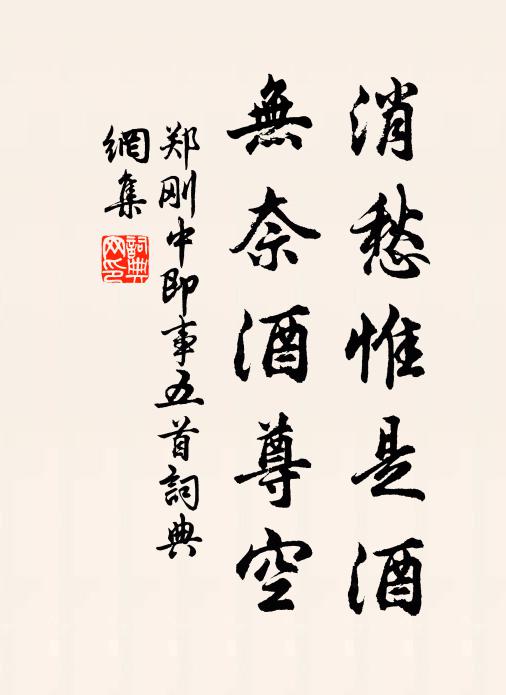 消愁惟是酒
無奈酒尊空
郑刚中即事五首詞典
網集
詞典网印